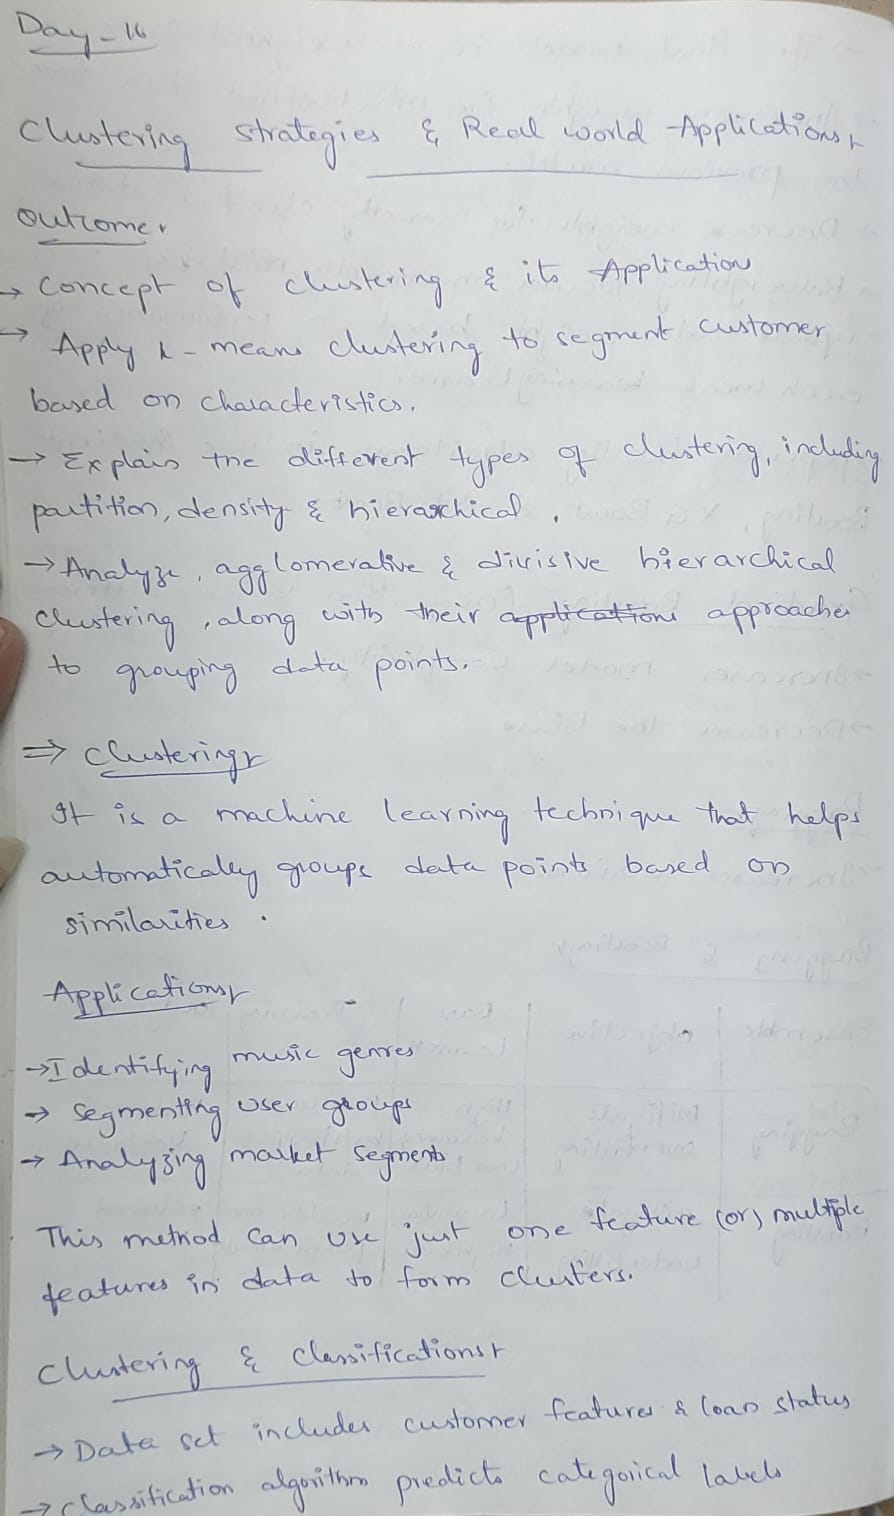 Day - 16
Clustering strategies & Real world Applications
Outcome
→ Concept of clustering & its Application
→ Apply k-means clustering to segment customer
based on characteristics.
→ Explain the different types of clustering, including
partition, density & hierarchical.
→ Analyze, agglomerative & divisive hierarchical
clustering, along with their applications approaches
to grouping data points.
⇒ Clustering
It is a machine learning technique that helps
automatically groups data points based on
similarities.
Applications
→ Identifying music genres
→ Segmenting user groups
→ Analyzing market segments
This method can use just one feature (or) multiple
features in data to form clusters.
Clustering & Classifications
→ Data set includes customer features & loan status
→ Classification algorithm predicts categorical labels